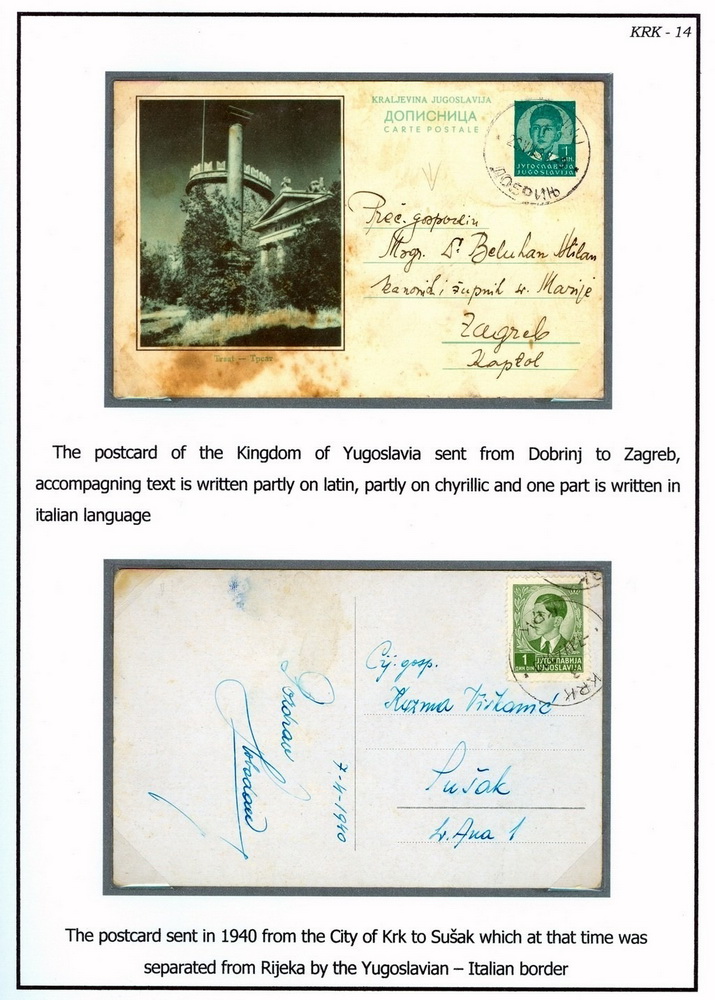 KRK - 14
KRALJEVINA JUGOSLAVIJA
ДОПИСНИЦА
CARTE POSTALE
1
ДИН.
ЈУГОСЛАВИЈА
JUGOSLAVIJA
ДОБРИЊ
Preč. gospodin
Msgr. Dr. Beluhan Milan
kanonik i župnik sv. Marije
Zagreb
Kaptol
Trsat — Трсат
The postcard of the Kingdom of Yugoslavia sent from Dobrinj to Zagreb,
accompagning text is written partly on latin, partly on chyrillic and one part is written in
italian language
1
ДИН. DIN.
ЈУГОСЛАВИЈА
JUGOSLAVIJA
KRK
Cij. gosp.
Kuzma
Sušak
Sv. Ana 1
Pozdrav
Slobodan
7-4-1940
The postcard sent in 1940 from the City of Krk to Sušak which at that time was
separated from Rijeka by the Yugoslavian – Italian border